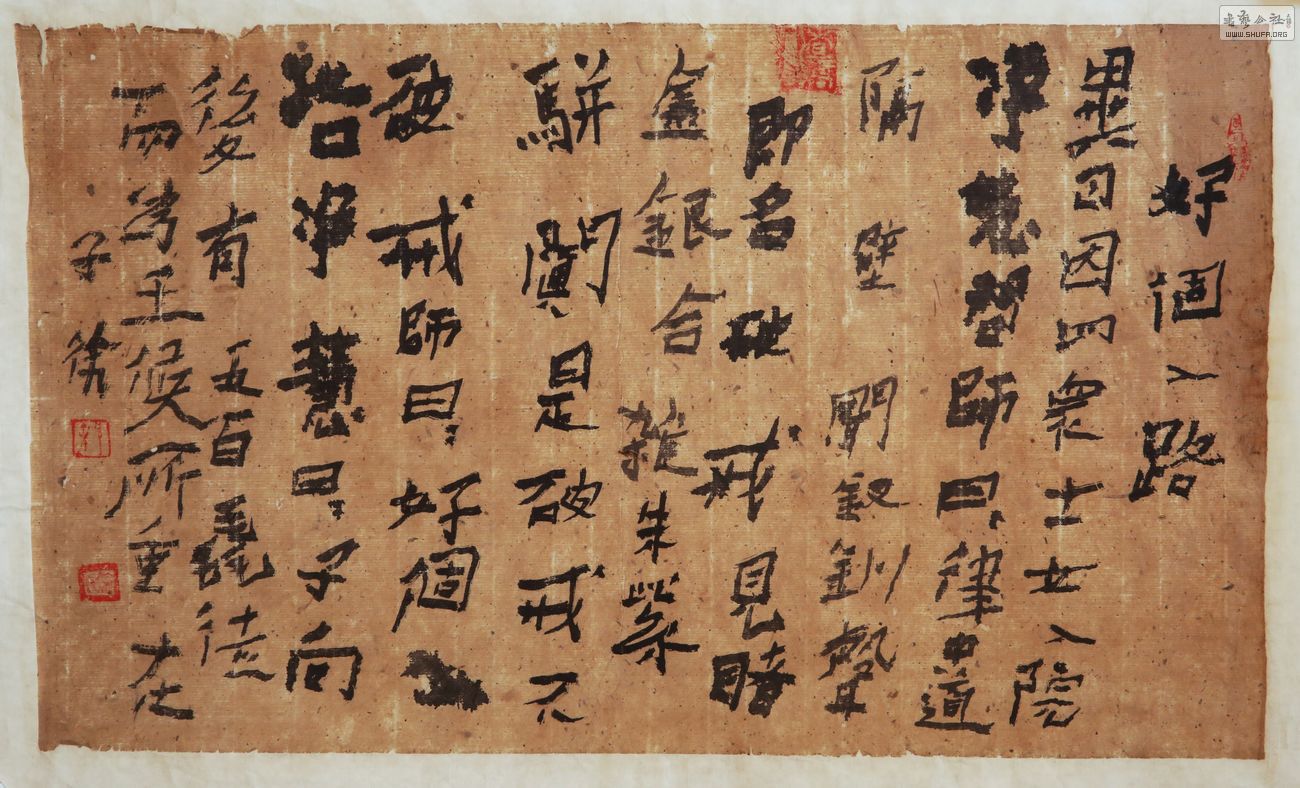 好個入路
異日因四眾士女入院
淨慧師曰律中道
隔壁聞釵釧聲
即名破戒見睹
金銀合雜朱紫
駢闐是破戒不
破戒師曰好個入
路淨慧曰子向
後有五百毳徒
而為王候所重在
子
書藝公社
WWW.SHUFA.ORG